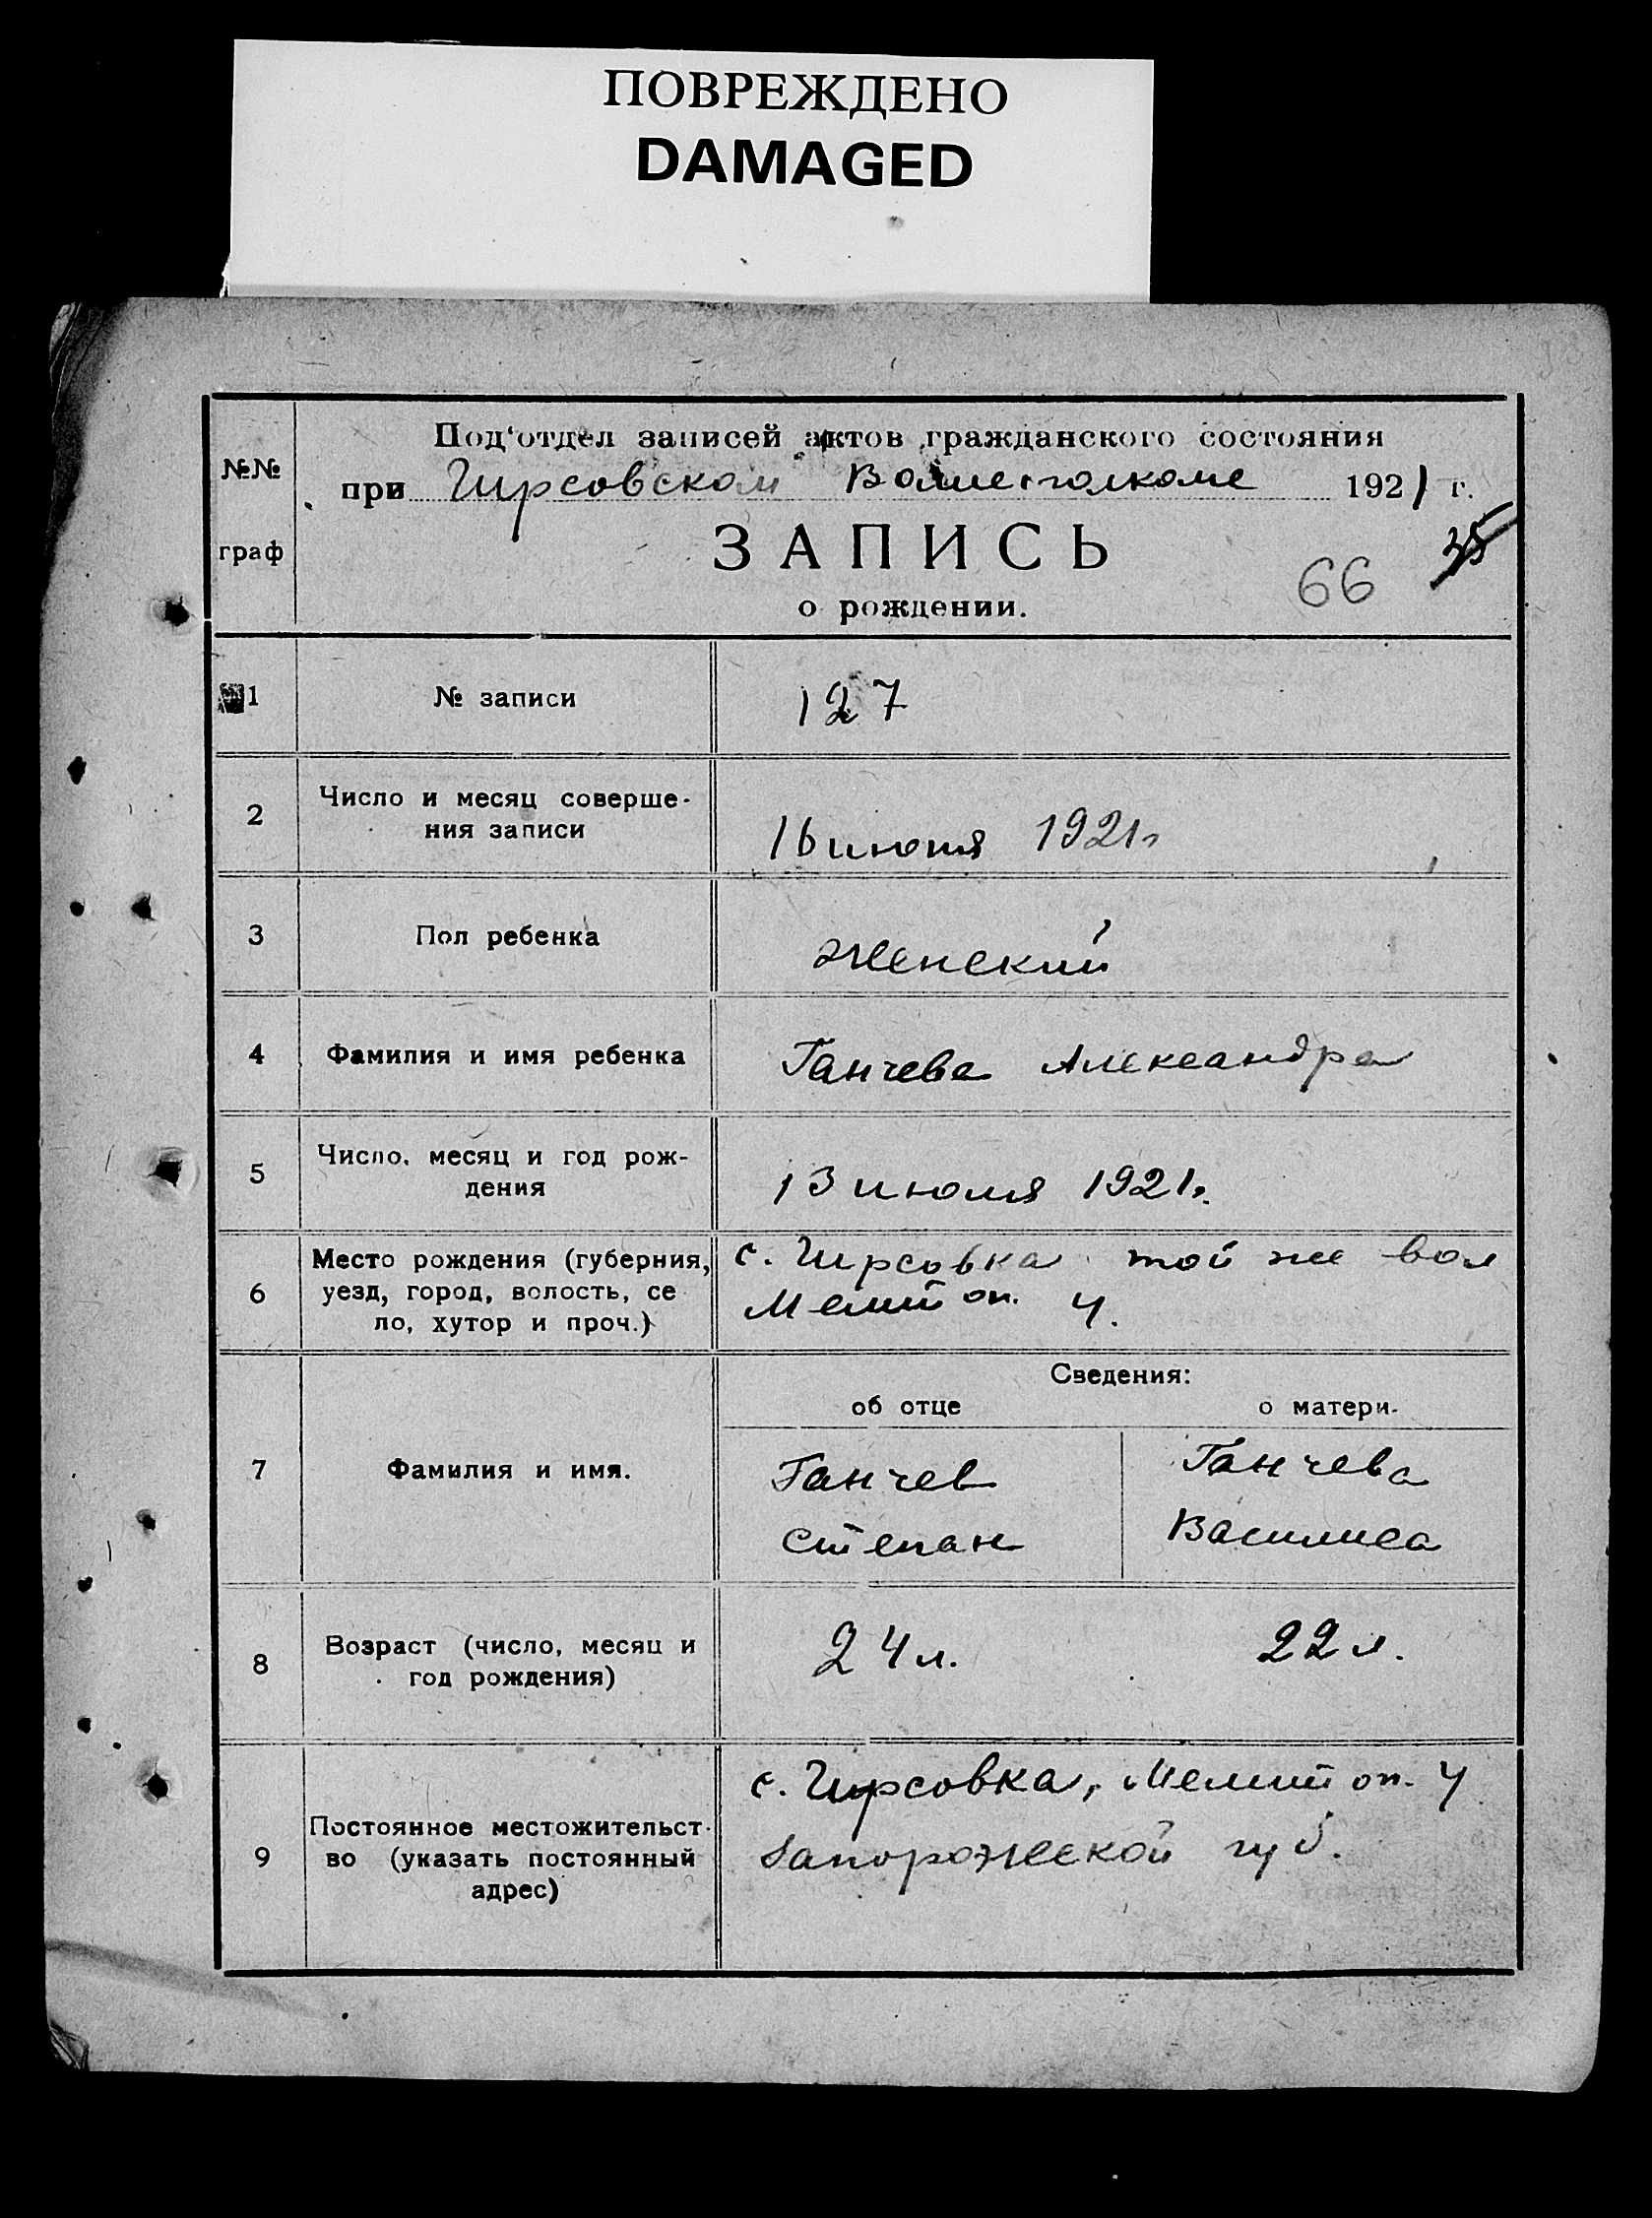 ПОВРЕЖДЕНО
DAMAGED
№№ граф
Под‘отдел записей актов гражданского состояния
при Гирсовском Волисполкоме 1921 г.
ЗАПИСЬ
66 35
о рождении.
1 № записи 127
2 Число и месяц соверше-
ния записи 16 июля 1921 г
3 Пол ребенка Женский
4 Фамилия и имя ребенка Ганчева Александра
5 Число, месяц и год рож-
дения 13 июля 1921 г.
6 Место рождения (губерния, с. Гирсовка той же вол
уезд, город, волость, се Мелитоп. у.
ло, хутор и проч.)
Сведения:
об отце о матери.
7 Фамилия и имя. Ганчев Ганчева
Степан Василиса
8 Возраст (число, месяц и 24 л. 22 л.
год рождения)
9 Постоянное местожительст- с. Гирсовка, Мелитоп. у
во (указать постоянный Запорожской губ.
адрес)